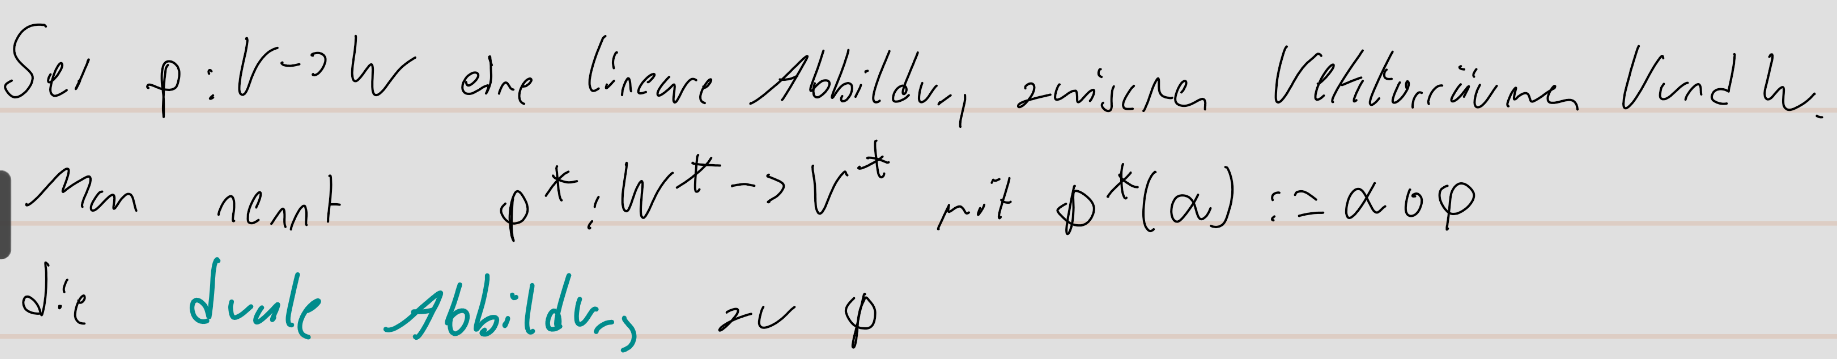 Sei φ : V -> W eine lineare Abbildung zwischen Vektorräumen V und W.
Man nennt φ* : W* -> V* mit φ*(α) := α ∘ φ
die duale Abbildung zu φ